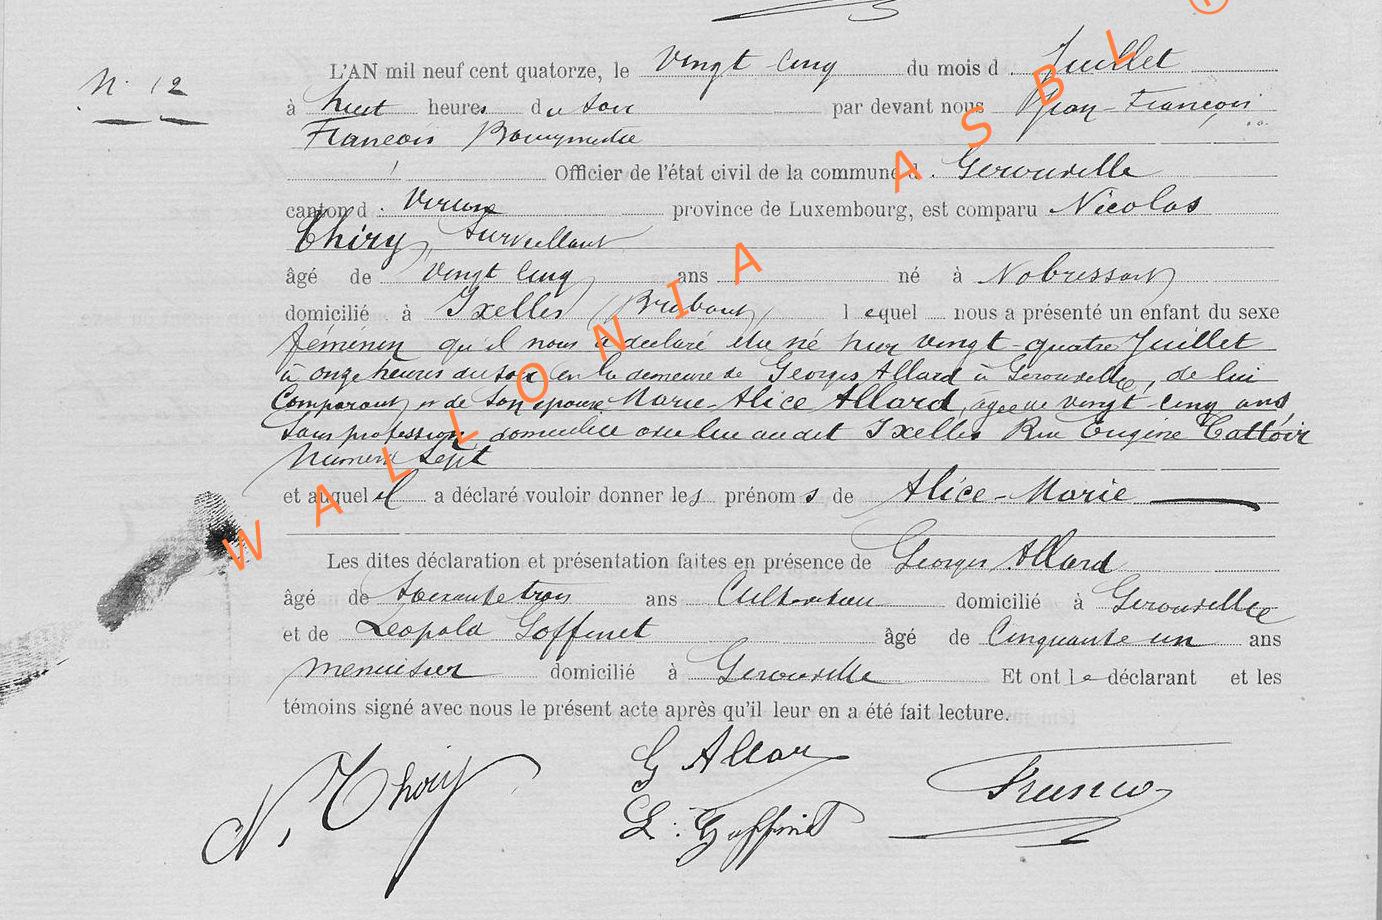 N. 12
L'AN mil neuf cent quatorze, le vingt cinq du mois d. Juillet
à huit heures du soir par devant nous Jean-François
Francois Bourgmestre
Officier de l'état civil de la commune d. Gerouville
canton d. Virton province de Luxembourg, est comparu Nicolas
Thiry, Surveillant
âgé de vingt cinq ans né à Nobressart
domicilié à Ixelles (Brabant) lequel nous a présenté un enfant du sexe
féminin qu'il nous a declaré être né hier vingt-quatre Juillet
à onze heures du soir en la demeure de Georges Allard à Gerouville, de lui
Comparant et de son épouse Marie-Alice Allard, agée de vingt-cinq ans,
sans profession, domiciliée avec lui audit Ixelles Rue Eugène Cattoir
numero sept
et auquel il a déclaré vouloir donner les prénoms de Alice-Marie
Les dites déclaration et présentation faites en présence de Georges Allard
âgé de soixante trois ans Cultivateur domicilié à Gerouville
et de Leopold Goffinet âgé de Cinquante un ans
menuisier domicilié à Gerouville Et ont le déclarant et les
témoins signé avec nous le présent acte après qu'il leur en a été fait lecture.
N. Thiry G Allar
L. Goffinet
WALLONIA ASBL ©